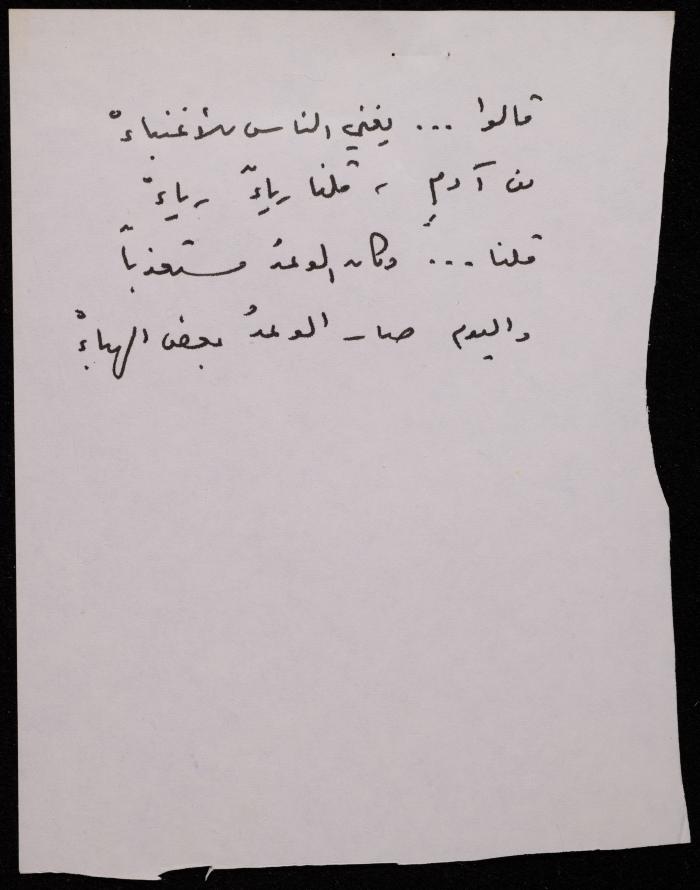 قالوا ... يغني الناس للأغنياءْ
من آدمٍ ، قلنا رياءٌ رياءْ
قلنا ... وكان الوعدُ مستعذباً
واليوم صار الوعدُ بعض الهباءْ